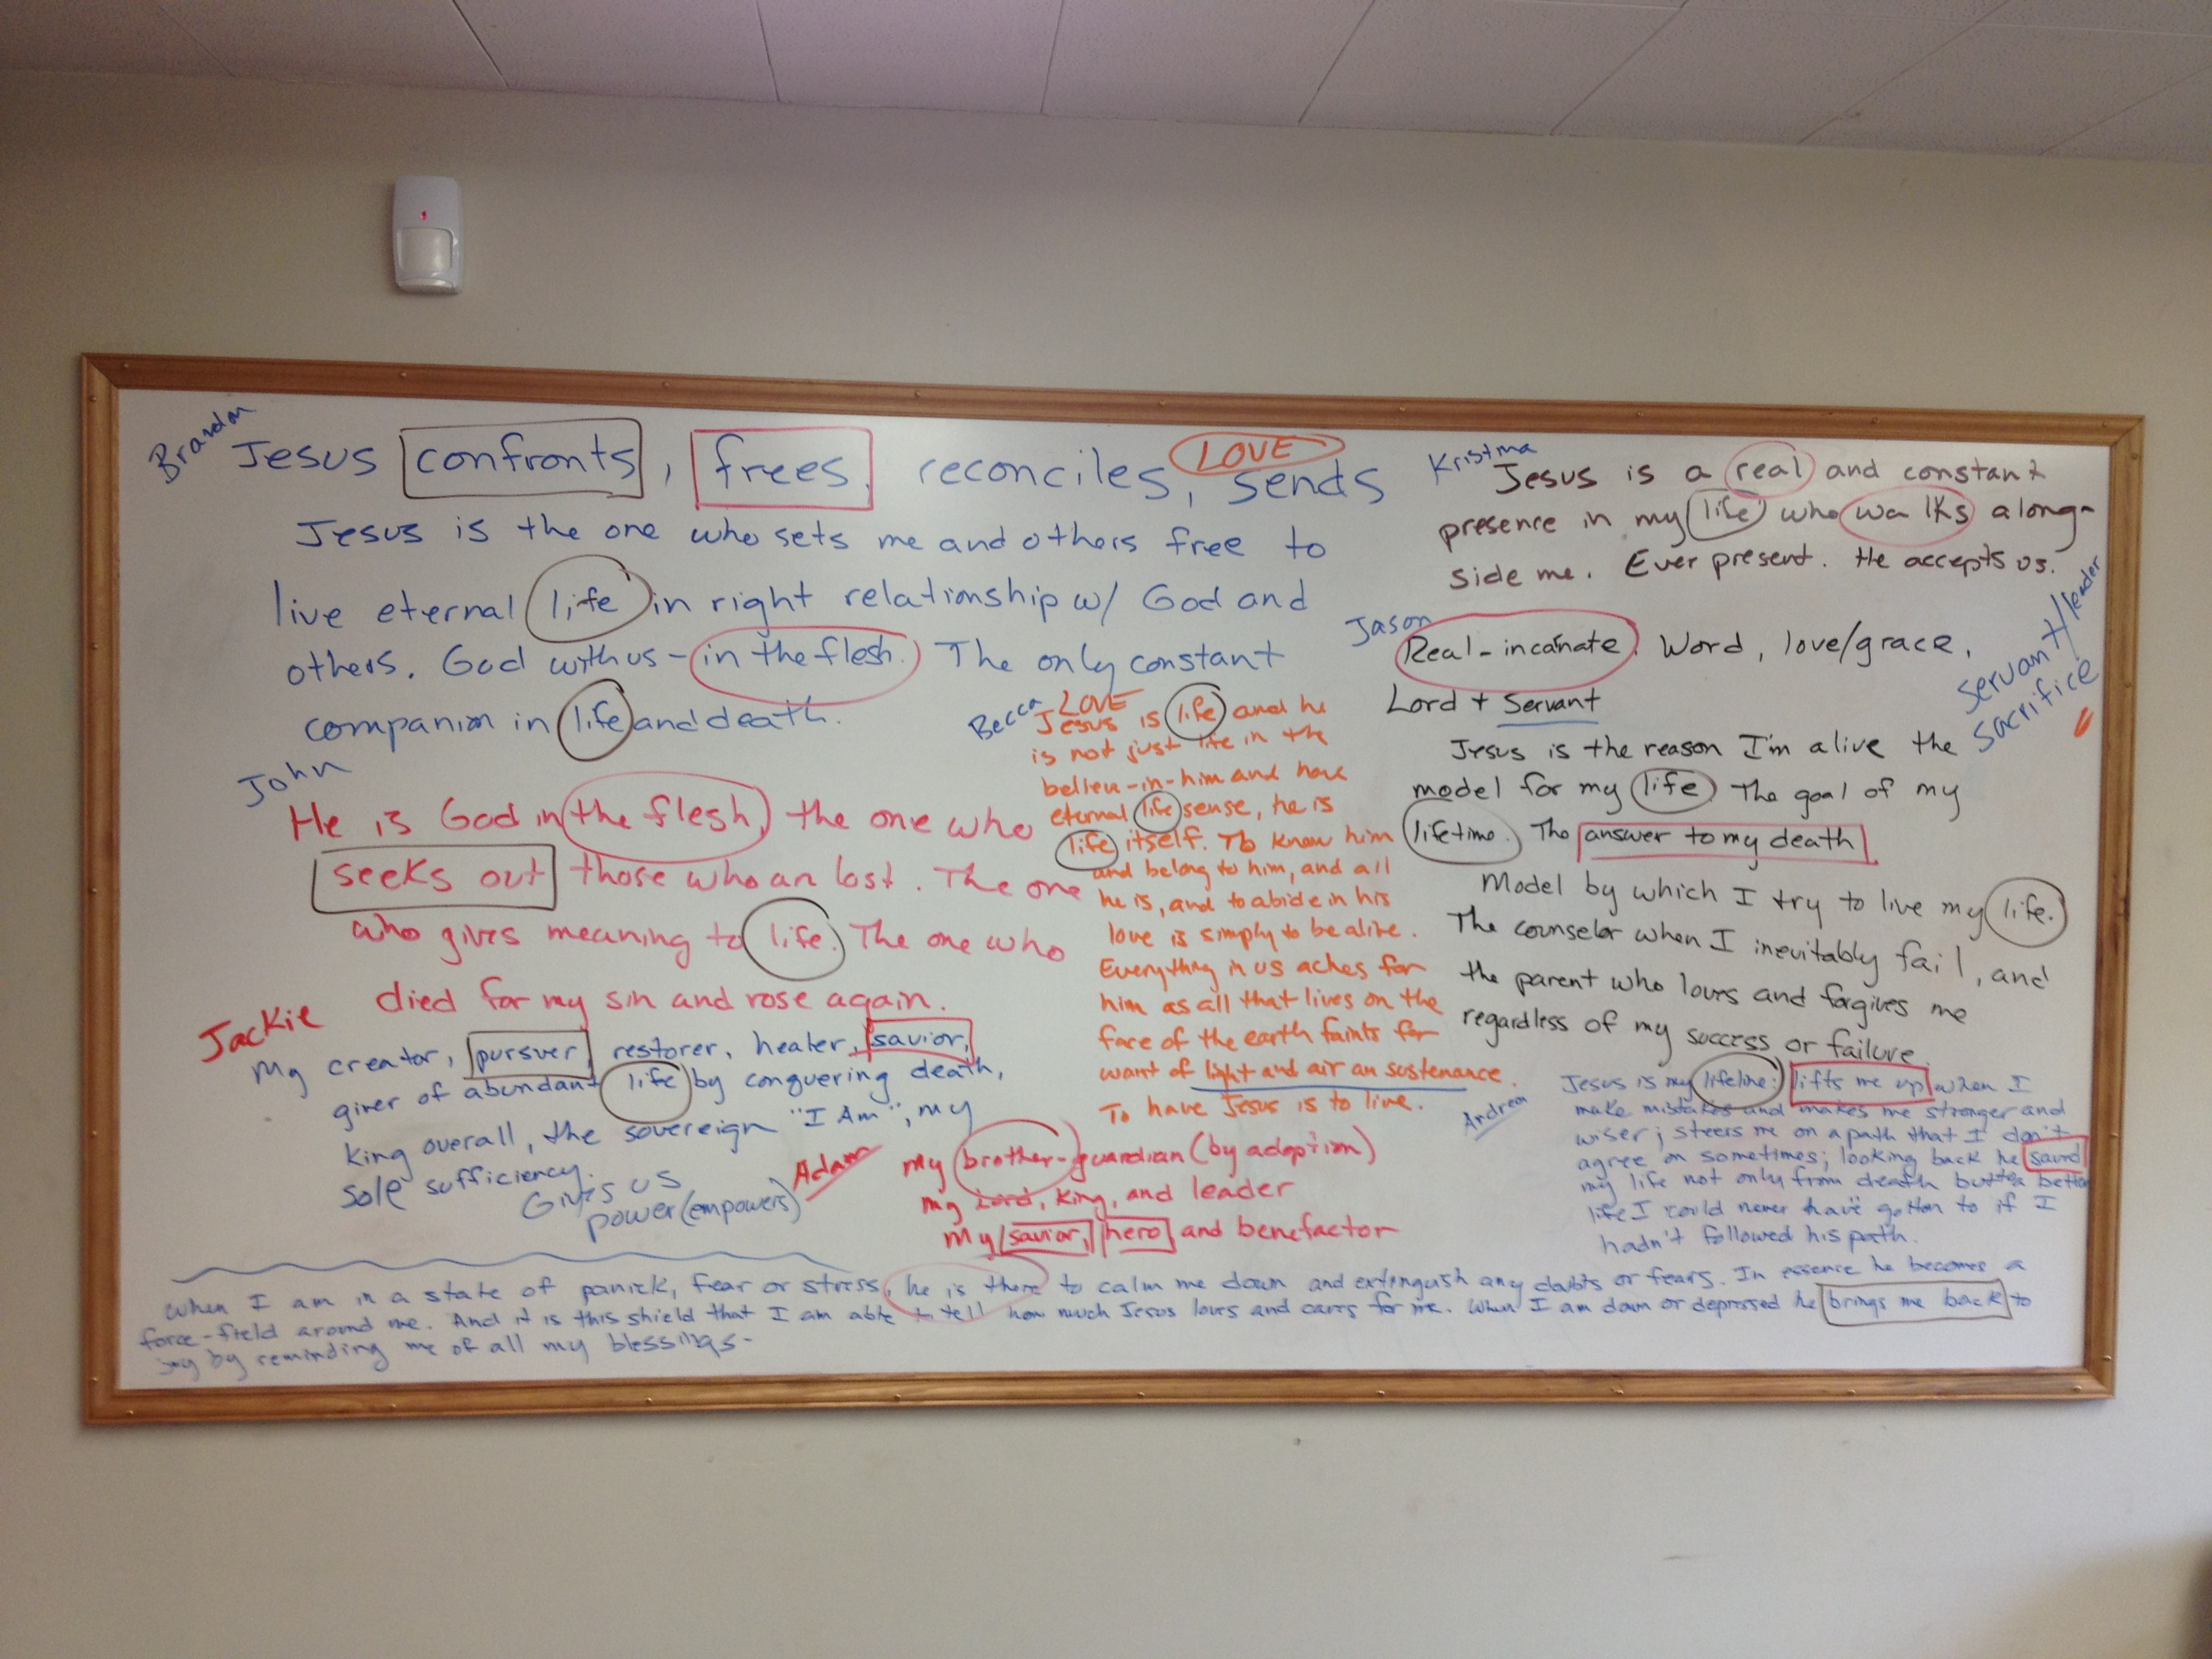 Brandon
Jesus confronts, frees, reconciles, sends
LOVE
Jesus is the one who sets me and others free to
live eternal life in right relationship w/ God and
others. God with us - in the flesh. The only constant
companion in life and death.
John
He is God in the flesh, the one who
seeks out those who are lost. The one
who gives meaning to life. The one who
died for my sin and rose again.
Jackie
My creator, pursuer, restorer, healer, savior,
giver of abundant life by conquering death,
King overall, the sovereign "I Am", my
sole sufficiency.
Gives us
power (empowers)
Becca
LOVE
Jesus is life and he
is not just life in the
believe-in-him and have
eternal life sense, he is
life itself. To know him
and belong to him, and all
he is, and to abide in his
love is simply to be alive.
Everything in us aches for
him as all that lives on the
face of the earth faints for
want of light and air an sustenance.
To have Jesus is to live.
Adam
My brother-guardian (by adoption)
my Lord, King, and leader
My savior, hero and benefactor
Kristina
Jesus is a real and constant
presence in my life who walks along-
side me. Ever present. He accepts us.
Jason
Real-incarnate. Word, love/grace,
Lord + Servant
servant/leader
sacrifice
Jesus is the reason I'm alive the
model for my life. The goal of my
lifetime. The answer to my death
Model by which I try to live my life.
The counselor when I inevitably fail, and
the parent who loves and forgives me
regardless of my success or failure.
Andrea
Jesus is my lifeline: lifts me up when I
make mistakes and makes me stronger and
wiser; steers me on a path that I don't
agree on sometimes; looking back he saved
my life not only from death but a better
life I could never have gotten to if I
hadn't followed his path.
When I am in a state of panick, fear or stress, he is there to calm me down and extinguish any doubts or fears. In essence he becomes a
force-field around me. And it is this shield that I am able to tell how much Jesus loves and cares for me. When I am down or depressed he brings me back to
joy by reminding me of all my blessings-